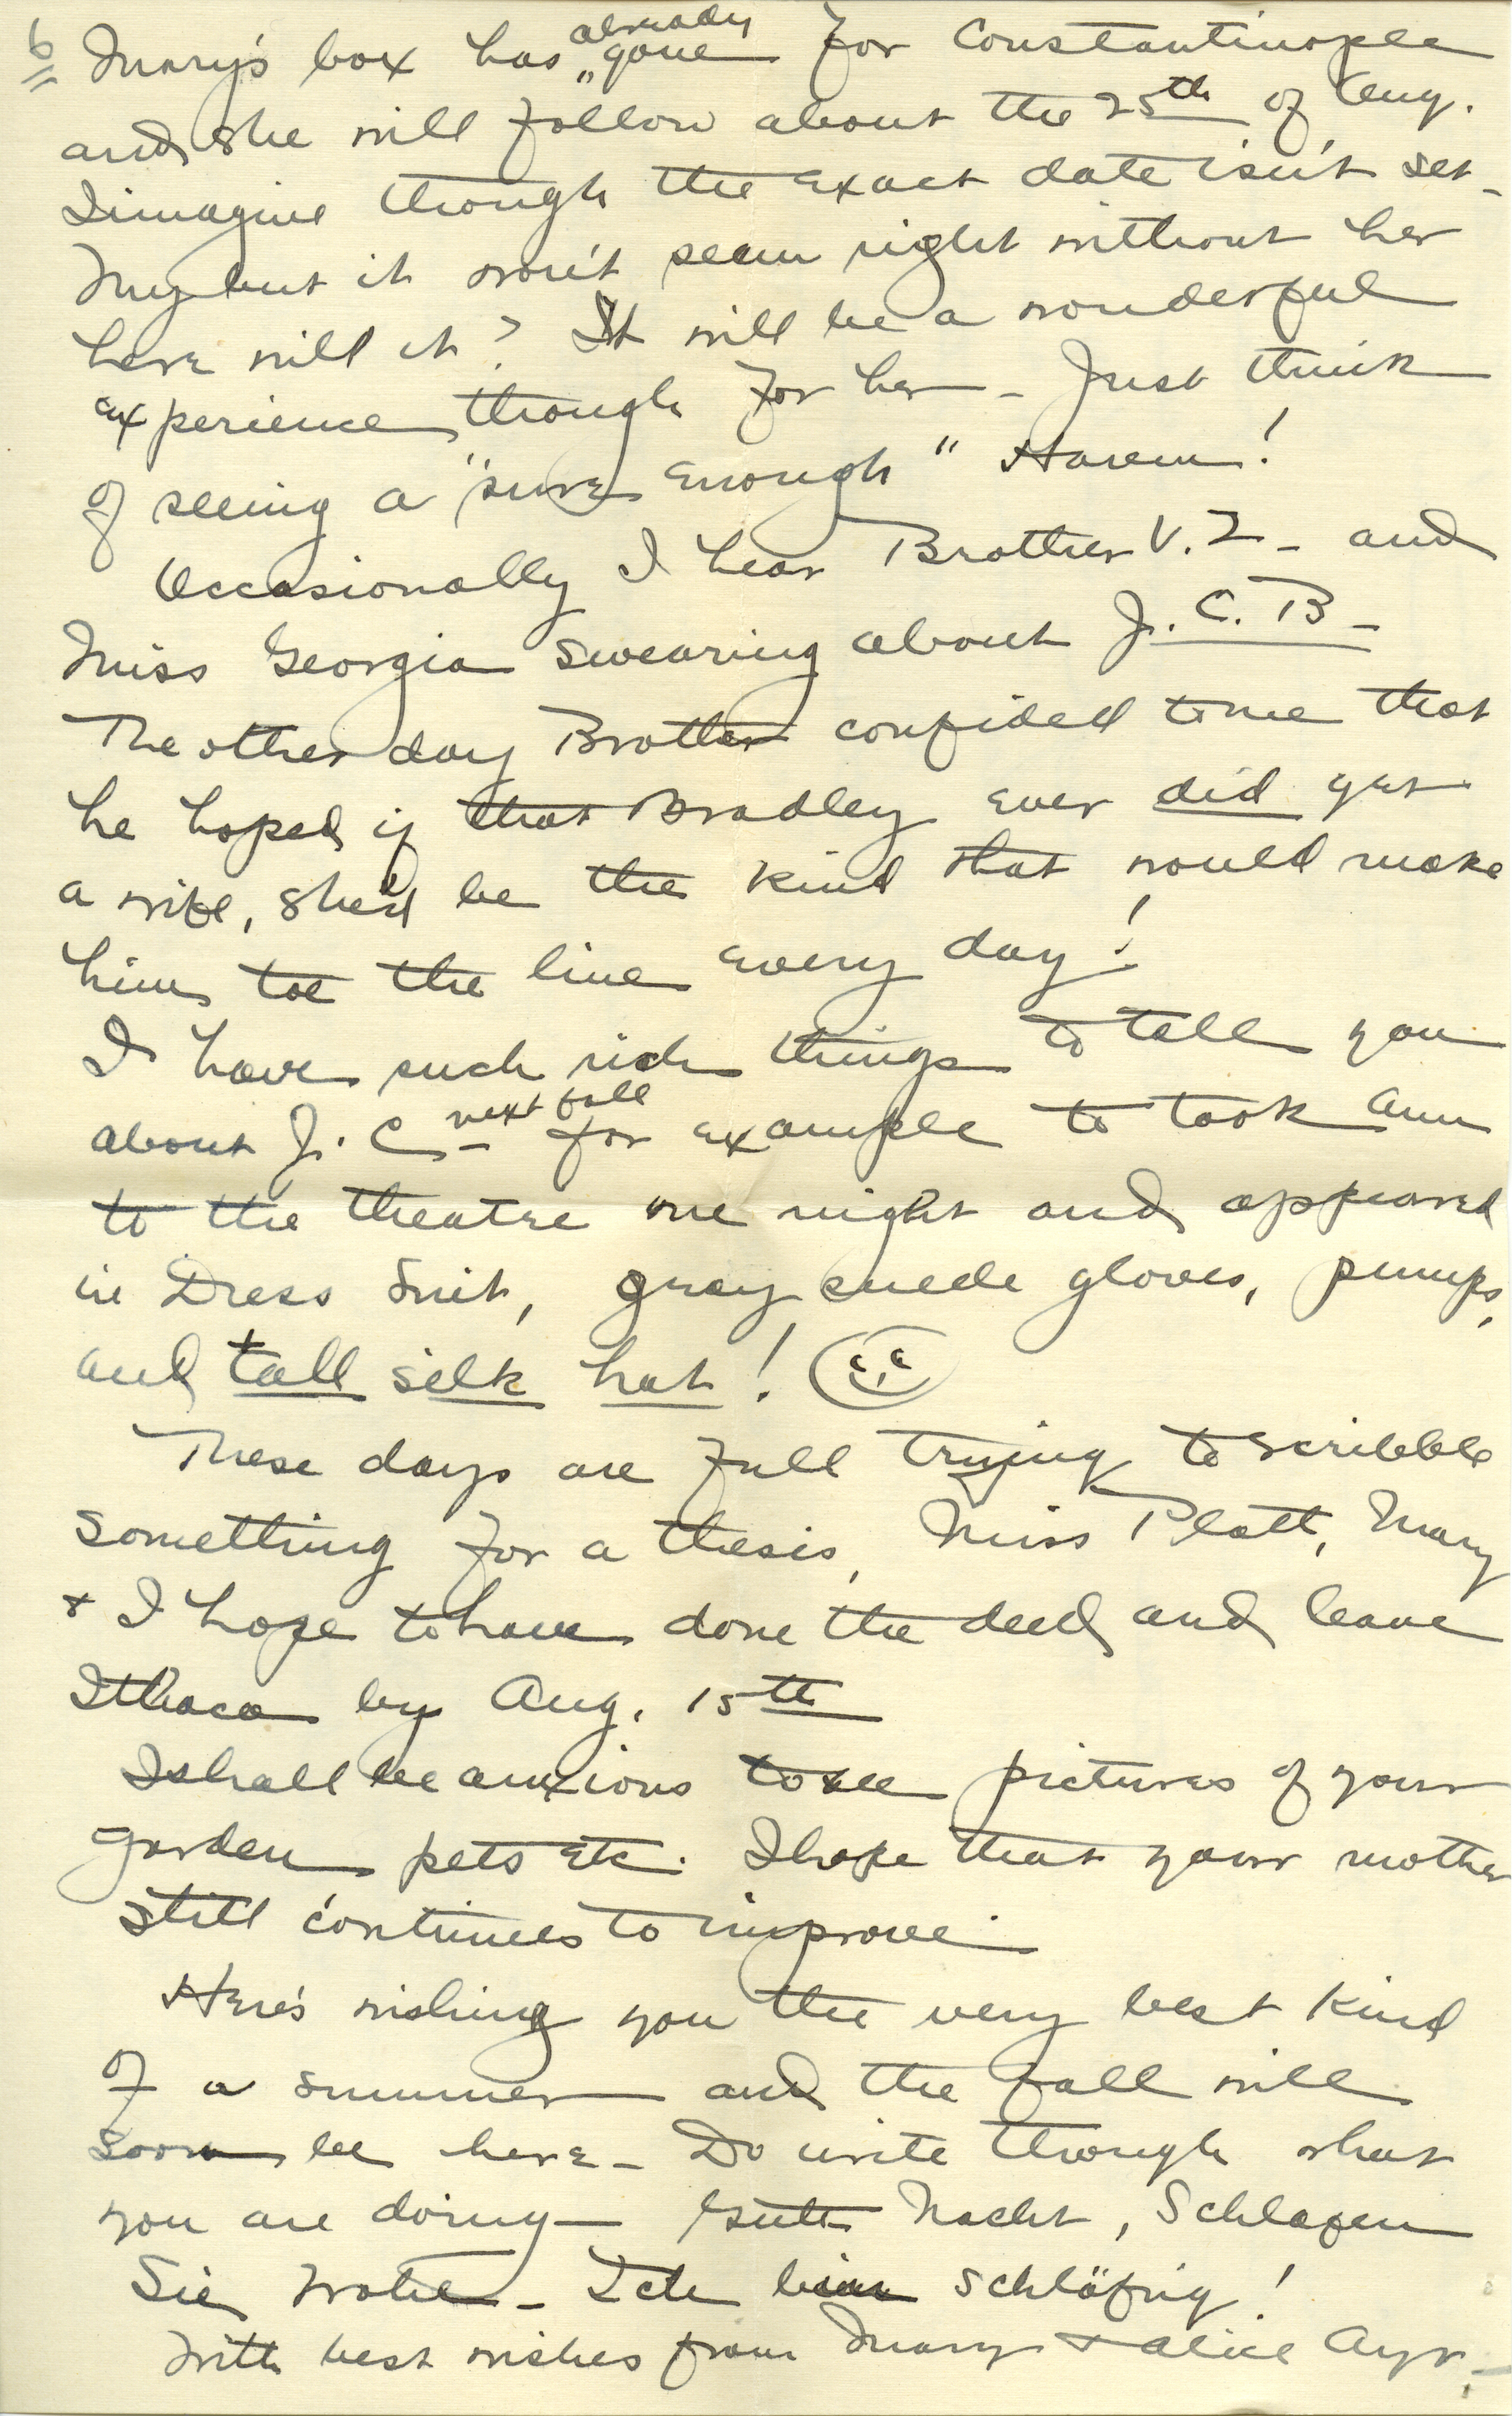 6 Mary's box has already gone for Constantinople
and she will follow about the 25th of Aug.
I imagine though the exact date isn't set -
My but it won't seem right without her
here will it? It will be a wonderful
experience though for her - Just think
of seeing a "sure enough" Harem!
Occasionally I hear Brother V. I - and
Miss Georgia swearing about J. C. B -
The other day Brother confided to me that
he hoped if that Bradley ever did get
a wife, she'd be the kind that would make
him toe the line every day!
I have such rich things to tell you
about J. C. - next fall for example to took Ann
to the theatre one night and appeared
in Dress Suit, gray suede gloves, pumps,
and tall silk hat!
These days are full trying to scribble
something for a thesis, Miss Platt, Mary
+ I hope to have done the deed and leave
Ithaca by Aug. 15th
I shall be anxious to see pictures of your
garden pets etc. I hope that your mother
still continues to improve.
Here's wishing you the very best kind
of a summer and the fall will
soon be here - Do write though what
you are doing - Gute Nacht, Schlafen
Sie Wohl - Ich bin schläfrig!
With best wishes from Mary + Alice Ayr -